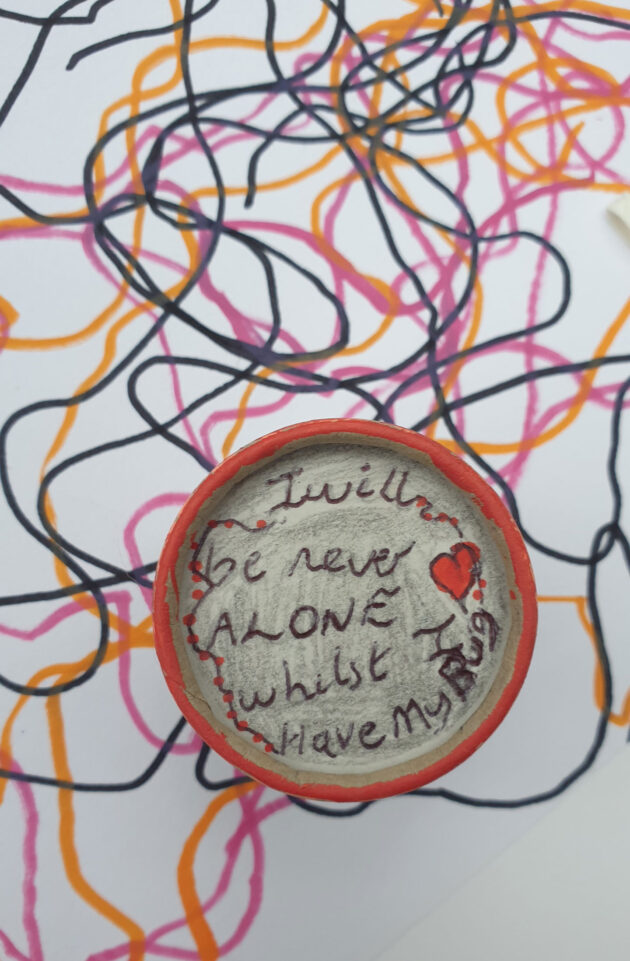 I will
be never
ALONE
whilst I
Have My